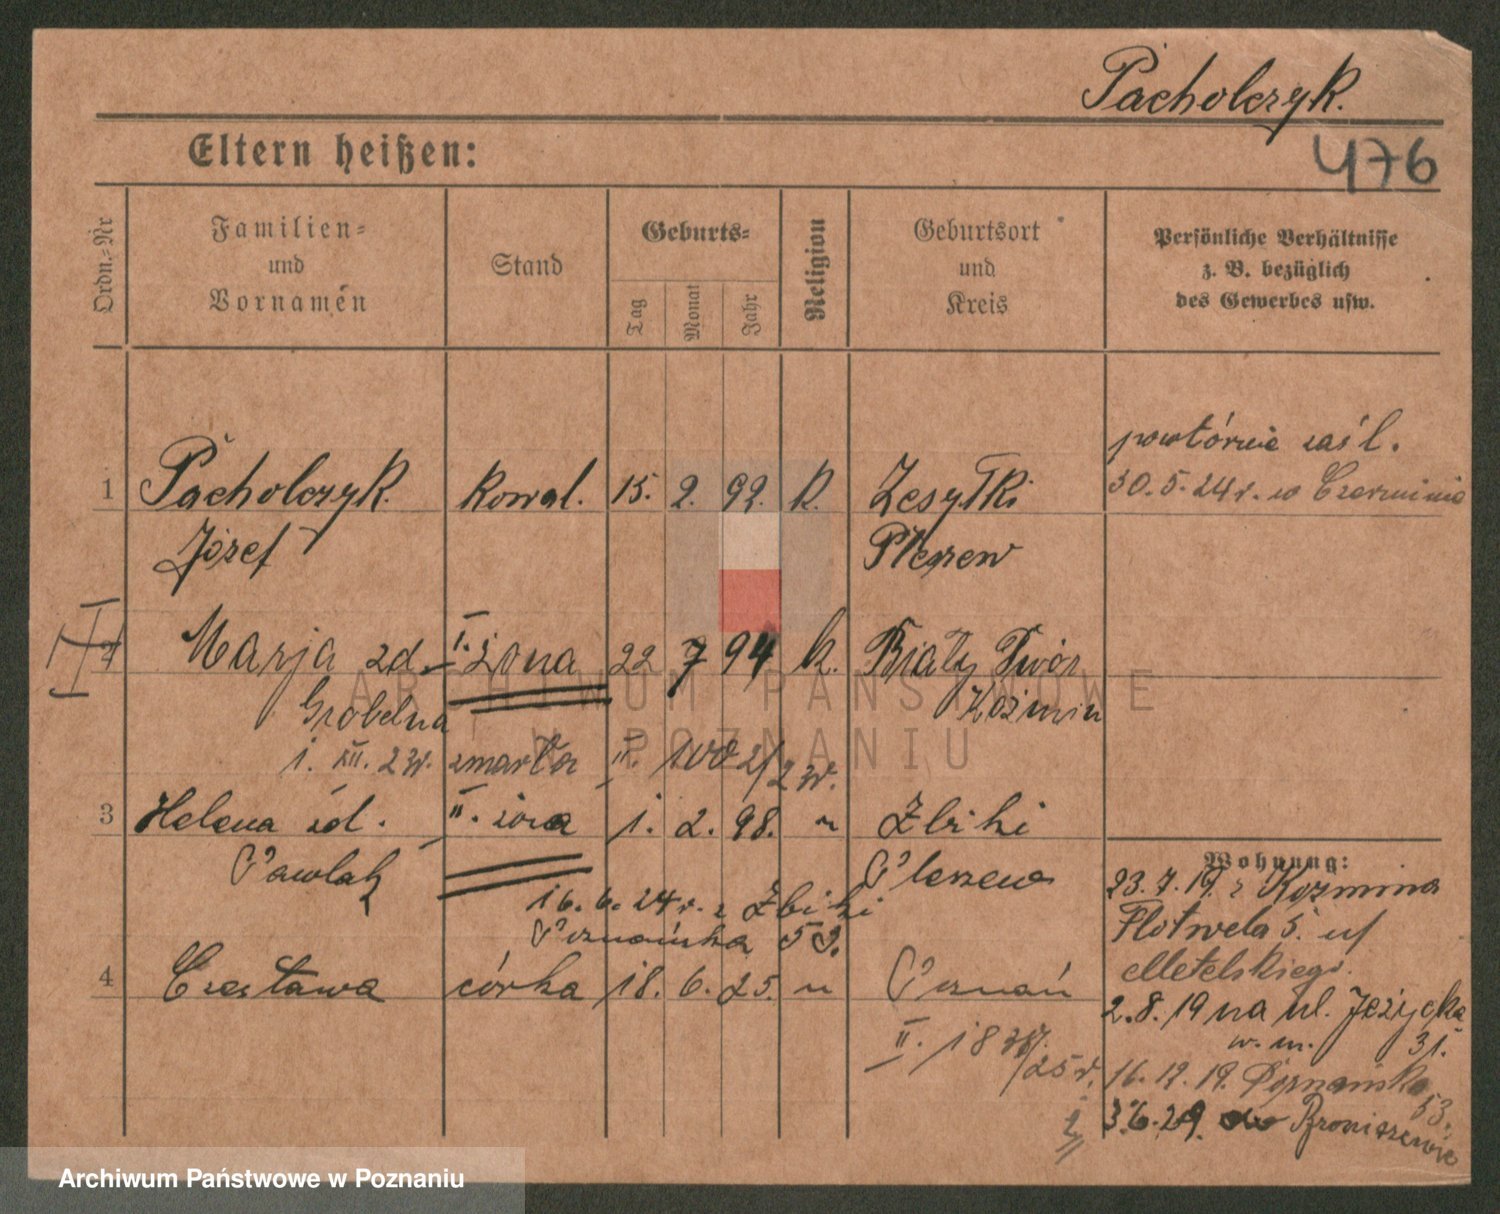 Pacholczyk.
476
Eltern heißen:
Ordn.-Nr
Familien- und Vornamen
Stand
Geburts-
Tag
Monat
Jahr
Religion
Geburtsort und Kreis
Persönliche Verhältnisse z. B. bezüglich des Gewerbes usw.
powtórnie zaśl.
1 Pacholczyk kowal. 15. 2. 92. k. 30.5.24 r. w Czerminie
Józef Pleszew
2 Marja zd. I. żona 22 7 94 k. Biały Dwór
Grobelna Koźmin
1. XII. 23r. zmarła II. 23r.
3 Helena zd. II. żona 1. 2. 98. " Żbiki
Pawlak Pleszew
Wohnung:
23.7.19. z Kozmina
16.6.24 r. z Żbiki
Flotwela 5. u/
Poznańska 53.
Metelskiego.
4 Czesława córka 18. 6. 25. " Poznań
2.8.19 na ul. Jeżycka
w. m. 31.
II. 25 r.
16.12.19. Poznańska 53.
3.6.29. do Broniszewic
ARCHIWUM PAŃSTWOWE
W POZNANIU
Archiwum Państwowe w Poznaniu